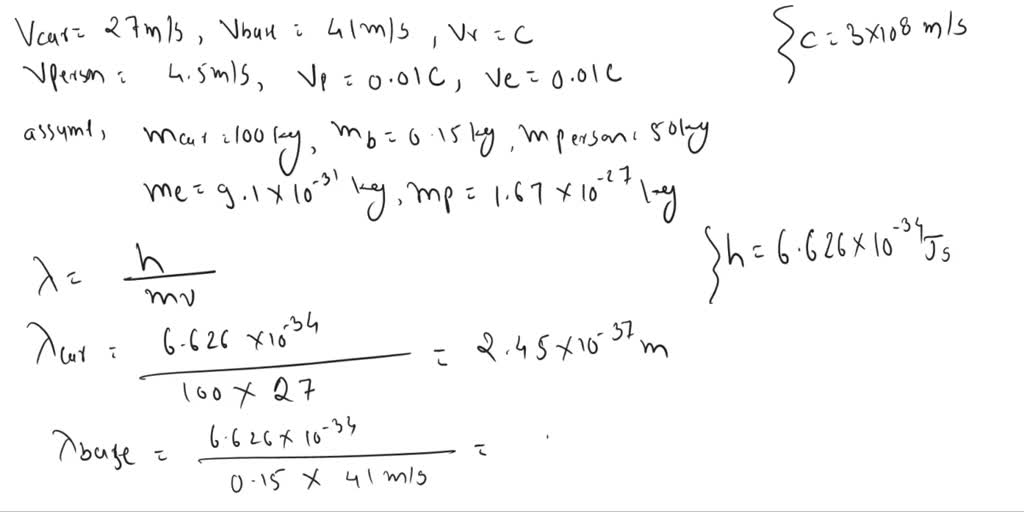 Vcar = 27m/s, Vball = 41m/s, Vr = C
{ C = 3×10⁸ m/s
Vperson = 4.5m/s, Vp = 0.01C, Ve = 0.01C
assume, mcar = 100kg, mb = 0.15kg, mperson = 50kg
me = 9.1×10⁻³¹ kg, mp = 1.67×10⁻²⁷ kg
} h = 6.626×10⁻³⁴ Js
λ = h / mv
λcar = 6.626×10⁻³⁴ / 100×27 = 2.45×10⁻³⁷ m
λbase = 6.626×10⁻³⁴ / 0.15 × 41m/s =